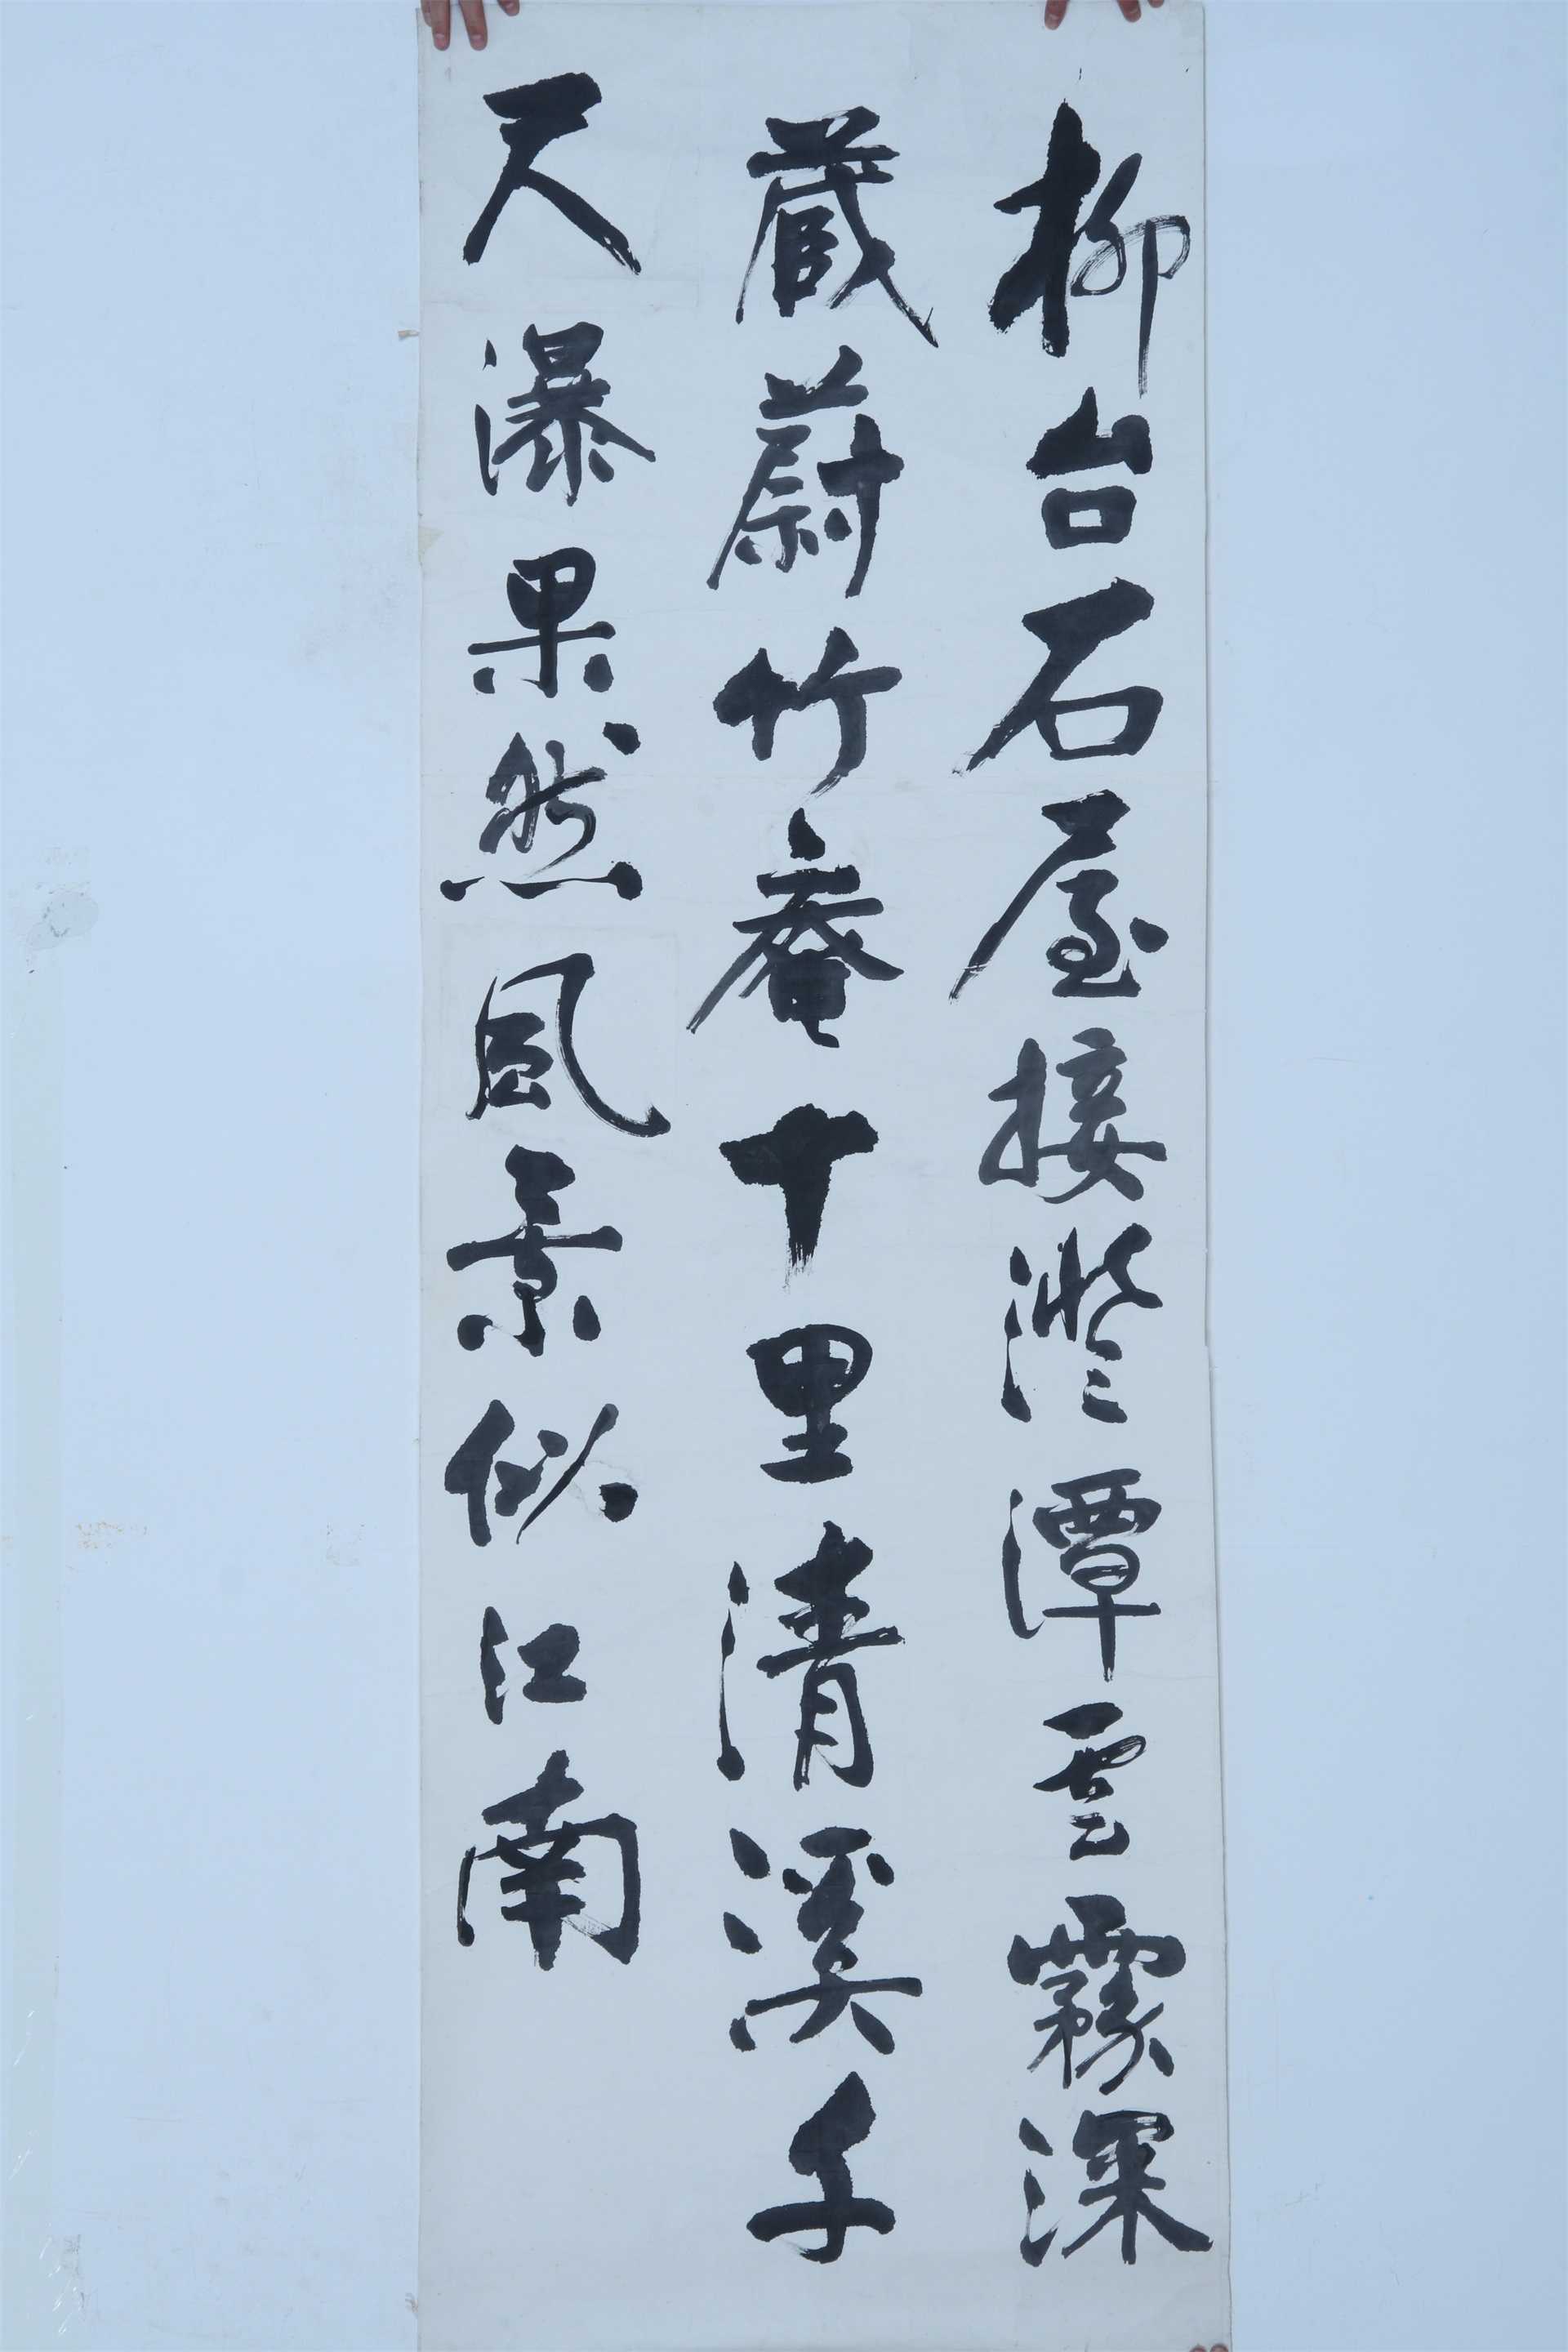 柳台石屋接澄潭雲霧深
藏蔚竹庵十里清溪千
尺瀑果然風景似江南